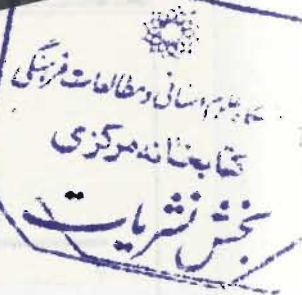 علوم انسانی و مطالعات فرهنگی
کتابخانه مرکزی
بخش نشریات